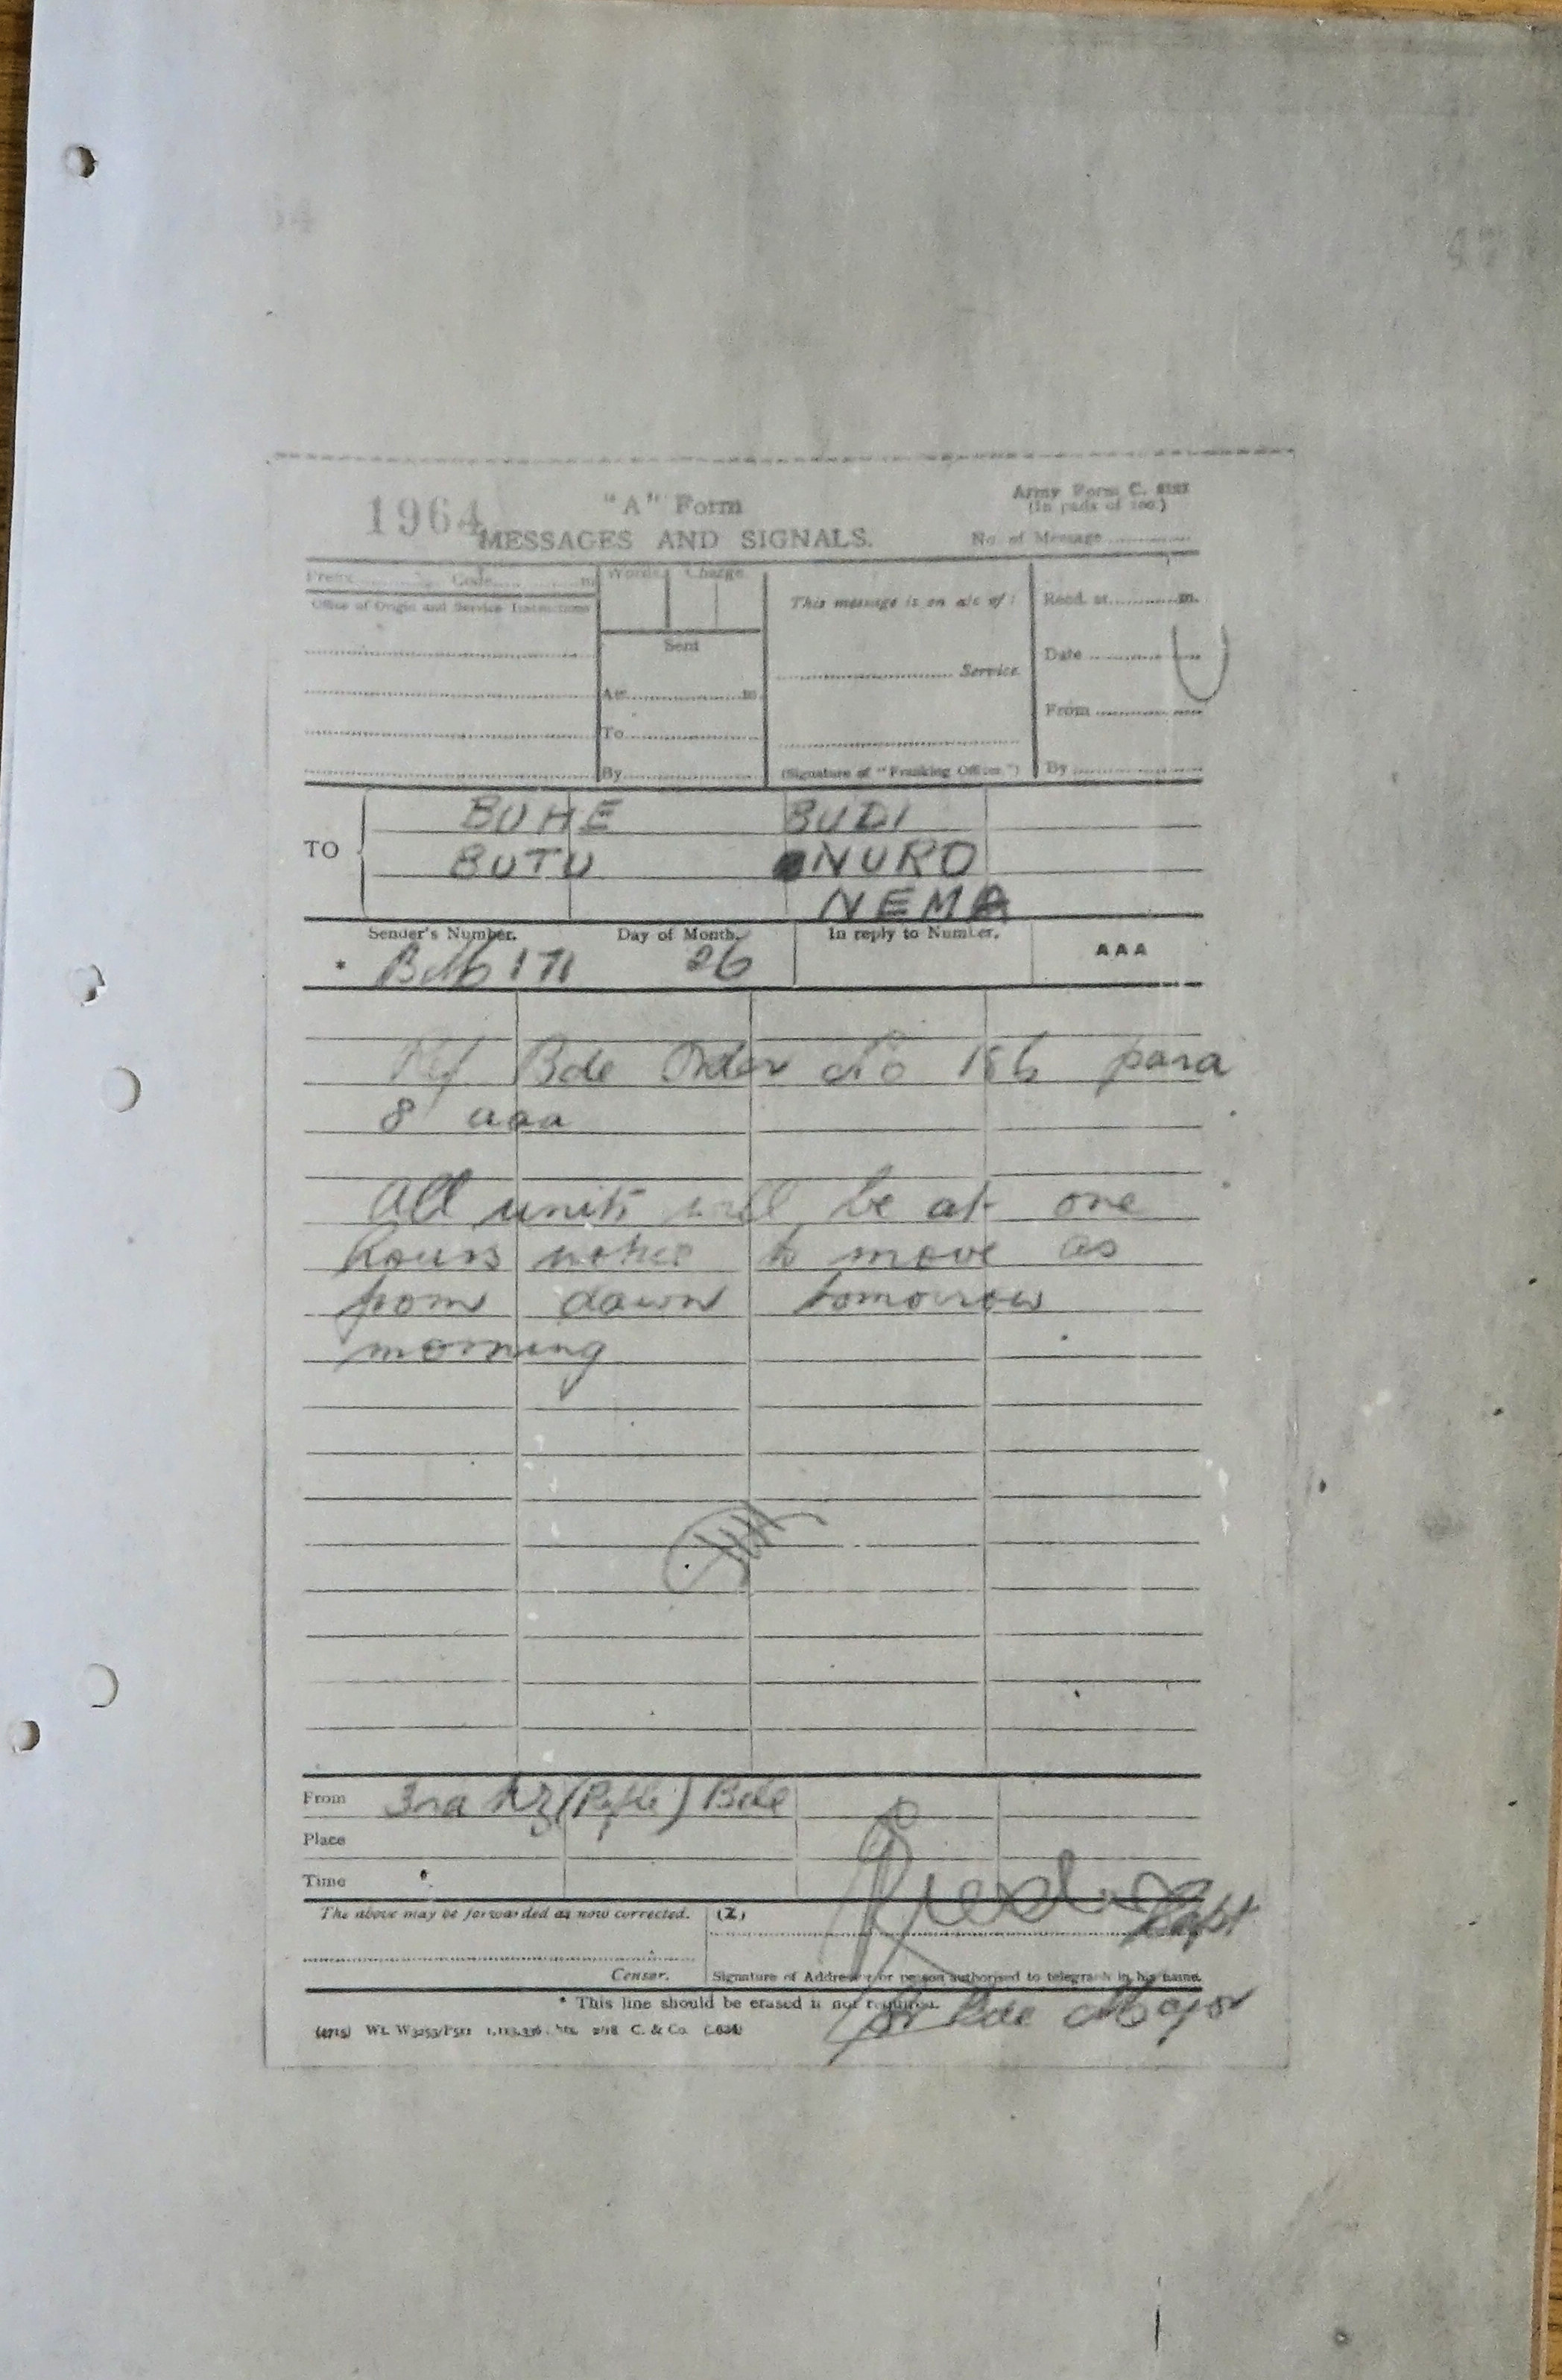 1964
"A" Form
Army Form C. 2121
(In pads of 100.)
MESSAGES AND SIGNALS.
No. of Message
Prefix Code m
Words Charge
Office of Origin and Service Instructions
This message is on a/c of:
Recd. at m.
Sent
Date
Service.
At m.
From
To
By
(Signature of "Franking Officer.")
By
BUHE BUDI
TO
BUTU NURO
NEMA
Sender's Number. Day of Month. In reply to Number. AAA
* 171 26
Ref Bde Order No 186 para
8 aaa
All units will be at one
hours notice to move as
from dawn tomorrow
morning
From 3rd NZ (Rifle) Bde
Place
Time
The above may be forwarded as now corrected. (Z)
Capt
Censor. Signature of Addressor or person authorised to telegraph in his name.
* This line should be erased if not required.
Bde Major
Wt. C. & Co.